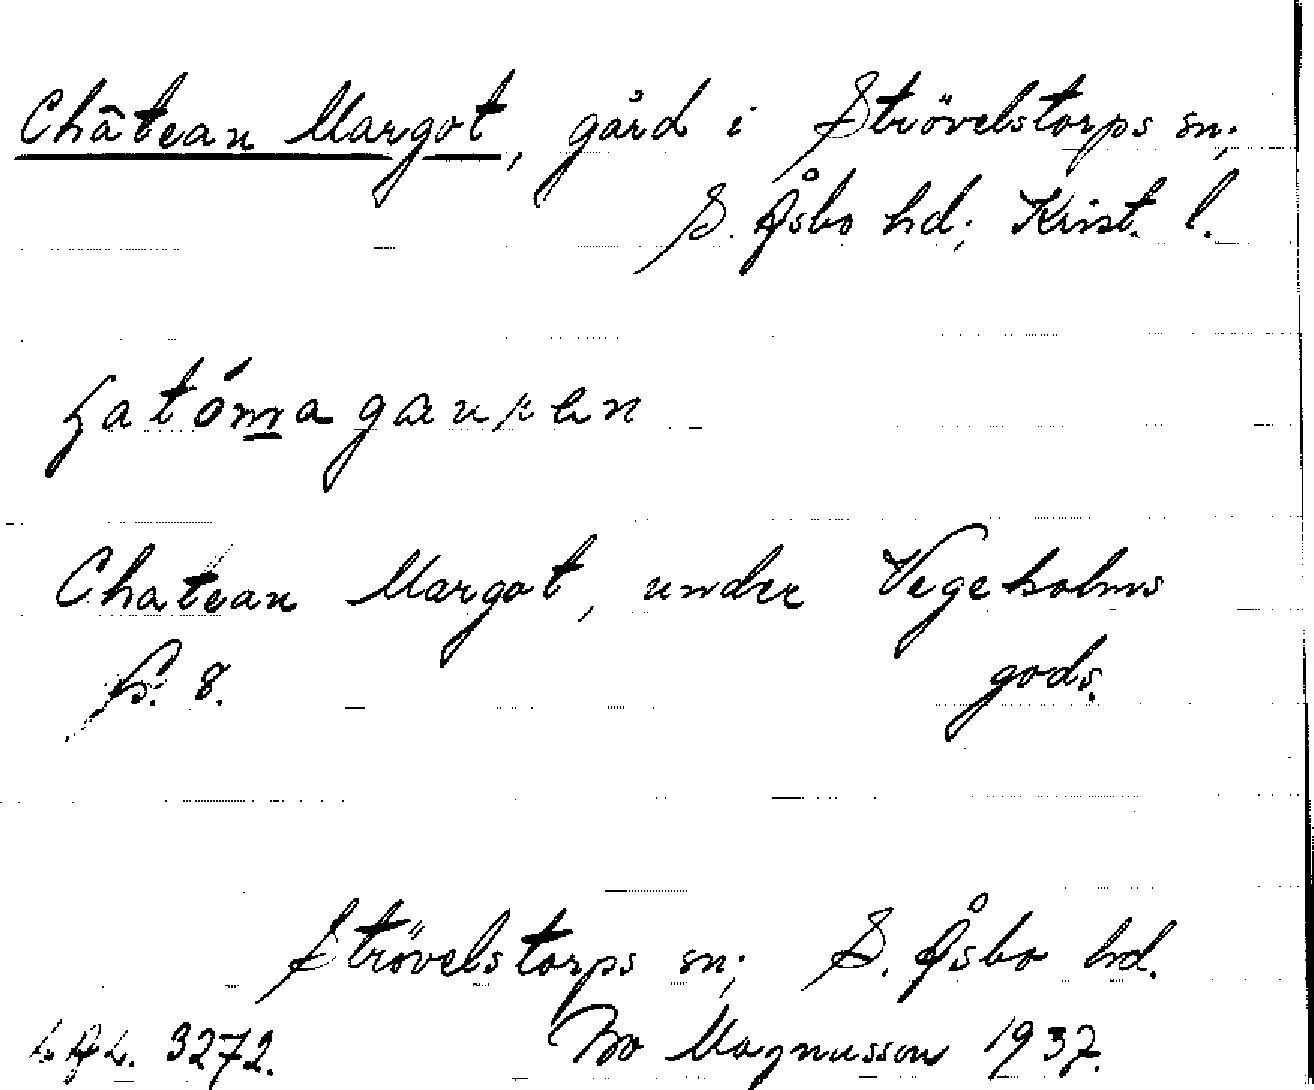 Château Margot, gård i Strövelstorps sn;
S. Åsbo hd; Krist. l.
Chateau Margot, under Vegeholms
gods.
8.
Strövelstorps sn; S. Åsbo hd.
3272. Bo Magnusson 1937.